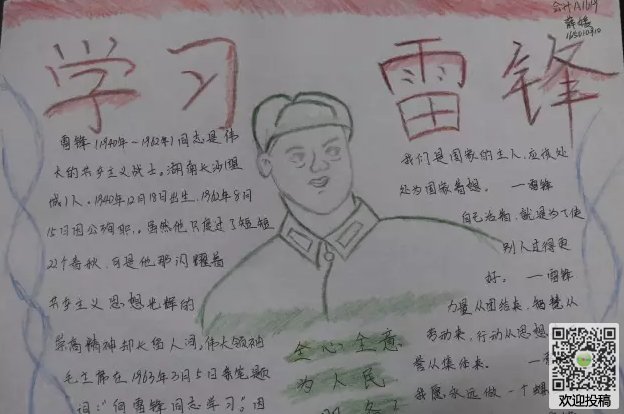 会计A1614
薛媛
学习 雷锋
雷锋(1940年~1962年)同志是伟
大的共产主义战士。湖南长沙望
城人，1940年12月18日出生，1962年8月
15日因公殉职。虽然他只度过了短短
22个春秋，可是他那闪耀着
共产主义思想光辉的
崇高精神却长留人间，伟大领袖
毛主席在1963年3月5日亲笔题
词：“向雷锋同志学习”。因
全心全意
为人民
服务
我们是国家的主人，应该处
处为国家着想。 —雷锋
自己活着，就是为了使
别人过得更
好。 —雷锋
力量从团结来，智慧从
劳动来，行动从思想
誉从集体来。
我愿永远做一个螺
欢迎投稿